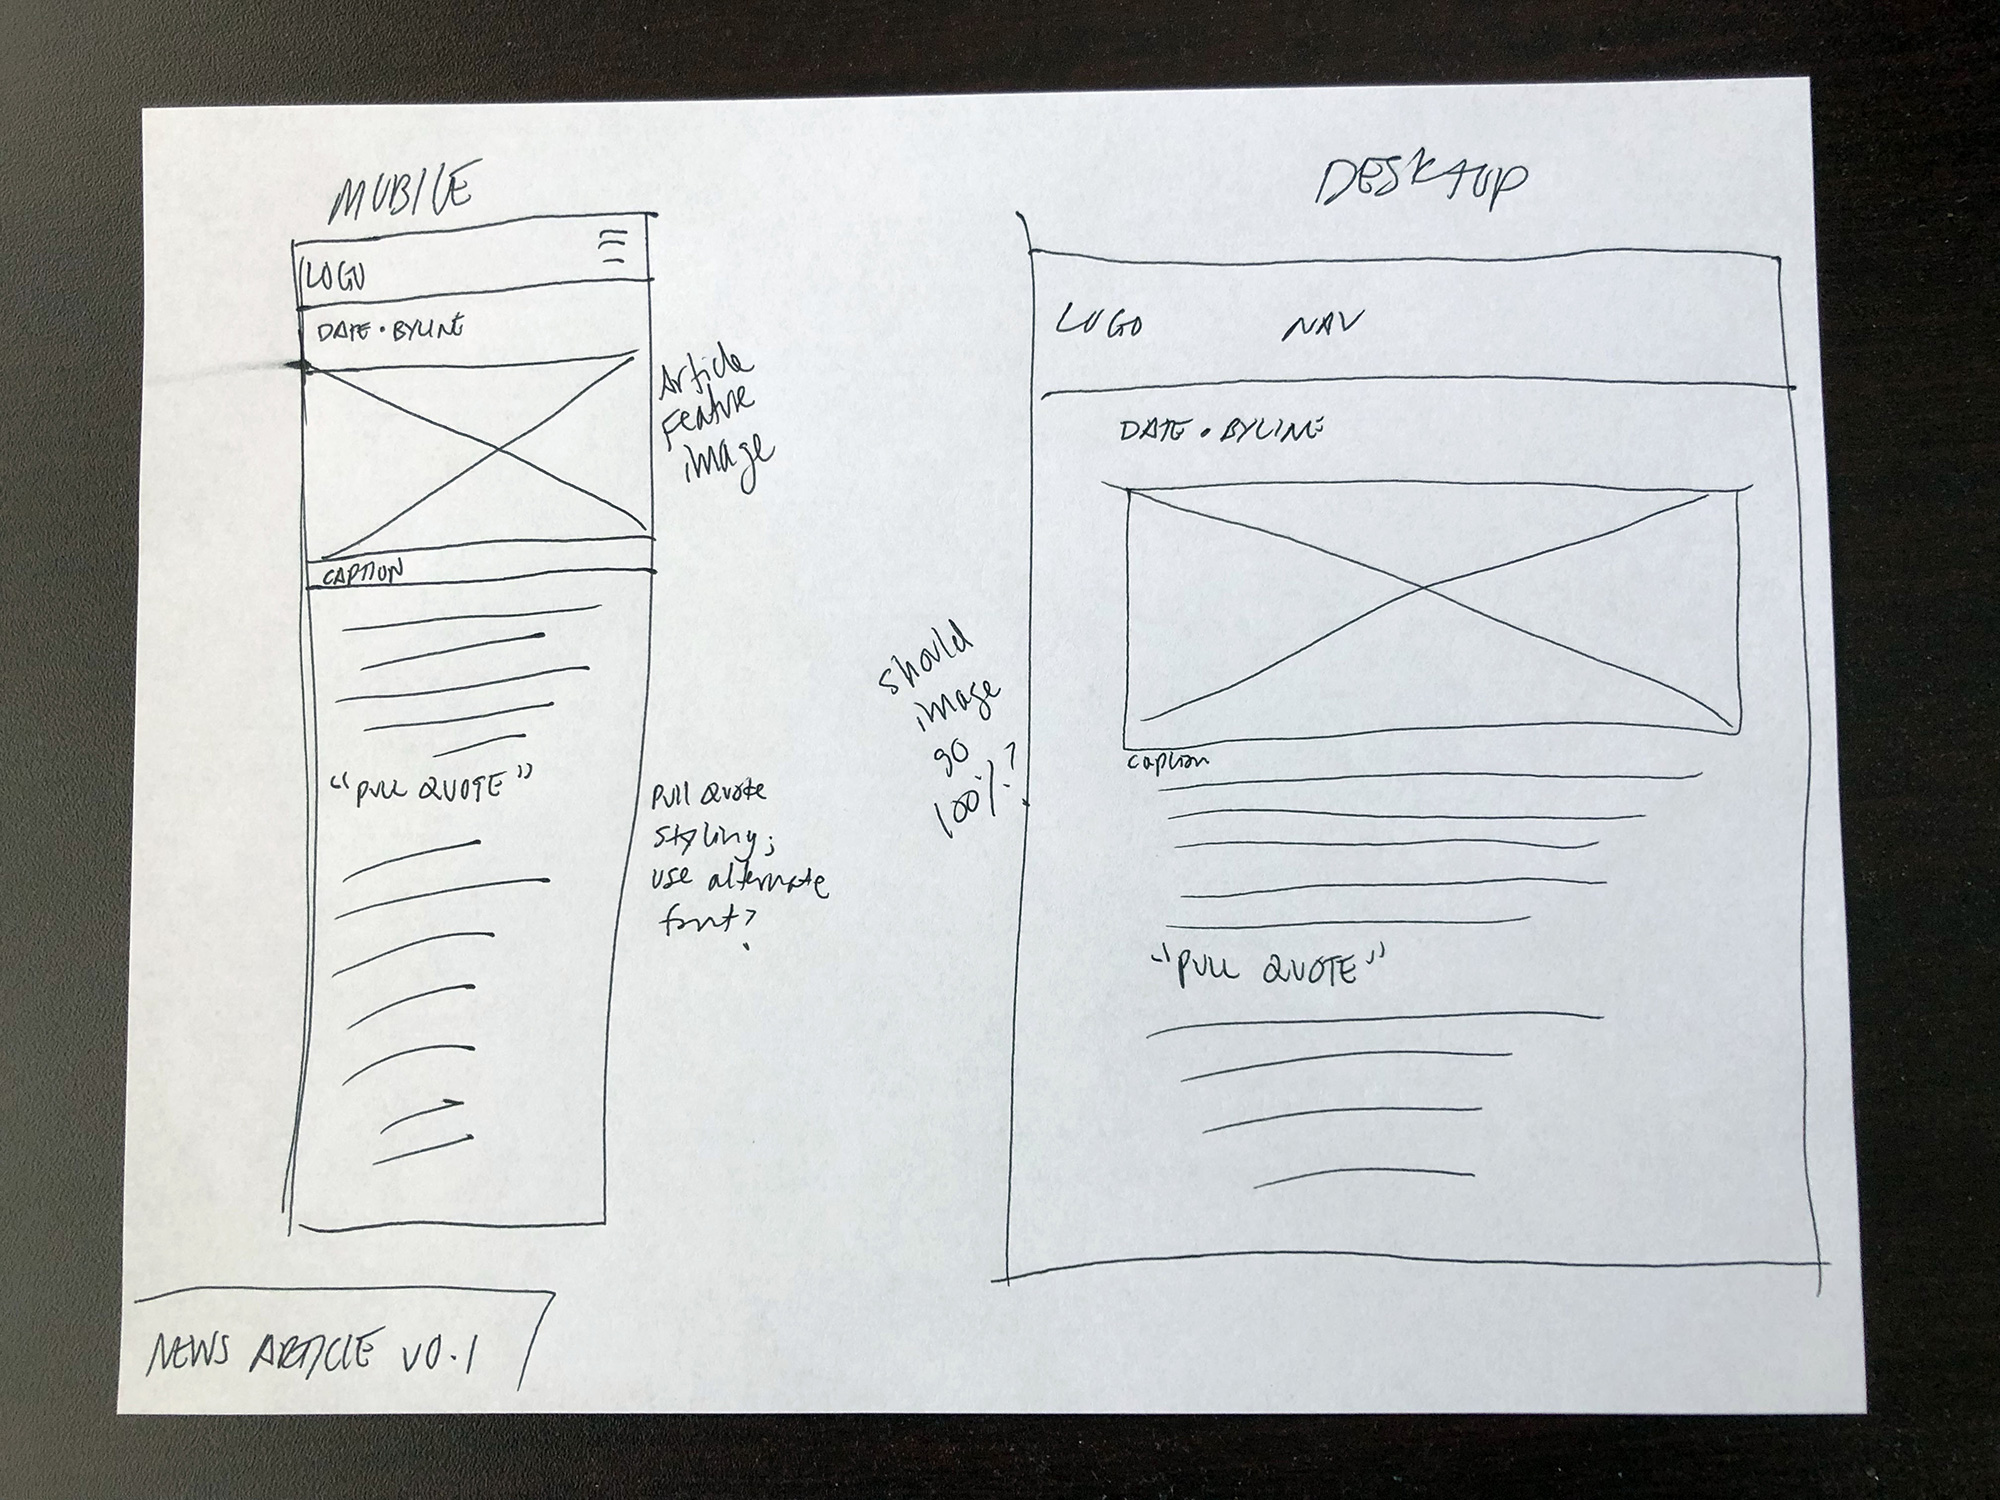 MOBILE
LOGO
DATE • BYLINE
Article
Feature
image
CAPTION
"PULL QUOTE"
Pull Quote
styling;
use alternate
font?
DESKTOP
LOGO NAV
DATE • BYLINE
should
image
go
100%?
caption
"PULL QUOTE"
NEWS ARTICLE v0.1